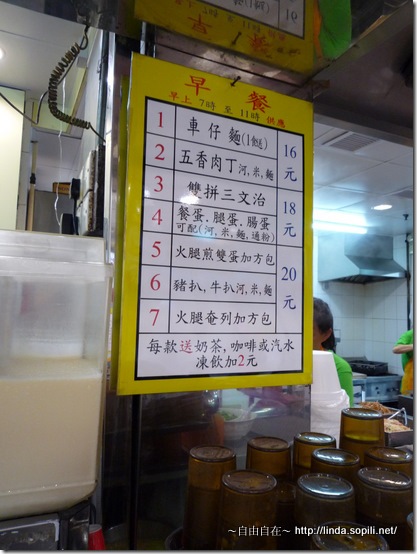 早餐
早上 7時 至 11時 供應
1 車仔麵(1餸) 16元
2 五香肉丁河,米,麵
3 雙拼三文治 18元
4 餐蛋.腿蛋.腸蛋
可配(河,米,麵,通粉)
5 火腿煎雙蛋加方包 20元
6 豬扒,牛扒河,米,麵
7 火腿奄列加方包
每款送奶茶,咖啡或汽水
凍飲加2元
～自由自在～ http://linda.sopili.net/